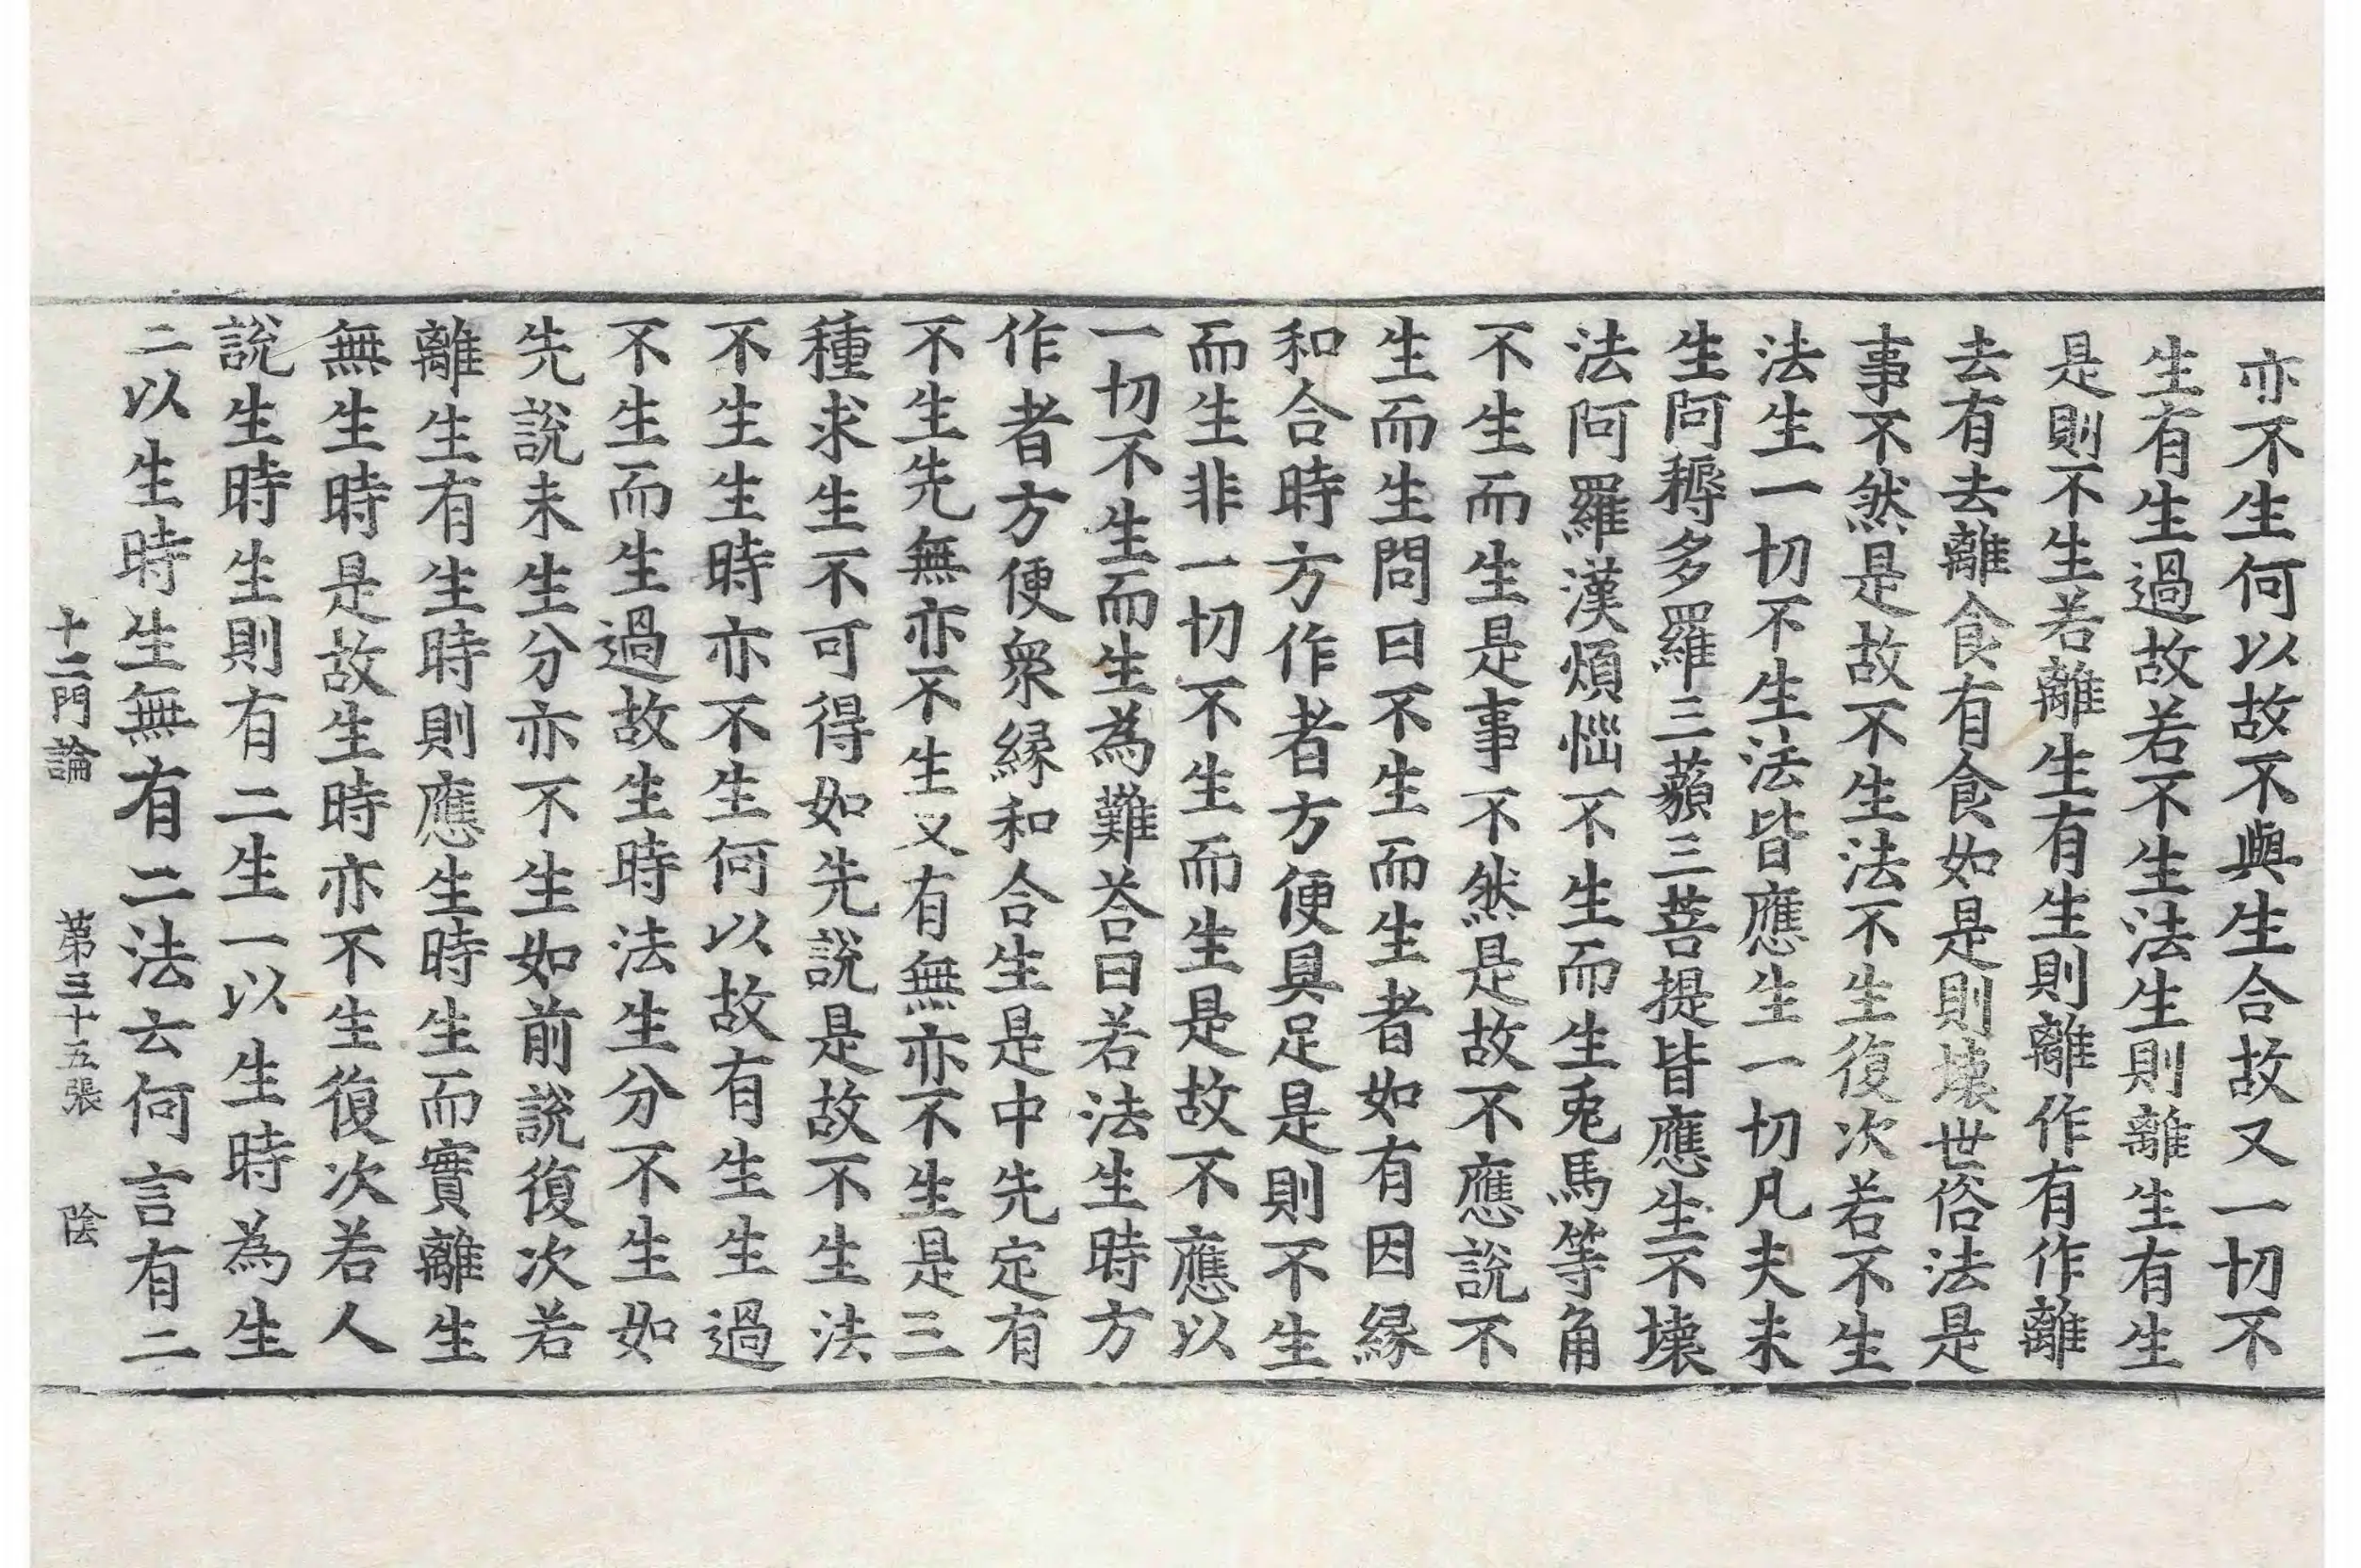 亦不生何以故不與生合故又一切不
生有生過故若不生法生則離生有生
是則不生若離生有生則離作有作離
去有去離食有食如是則壞世俗法是
事不然是故不生法不生復次若不生
法生一切不生法皆應生一切凡夫未
生阿耨多羅三藐三菩提皆應生不壞
法阿羅漢煩惱不生而生兎馬等角
不生而生是事不然是故不應說不
生而生問曰不生而生者如有因縁
和合時方作者方便具足是則不生
而生非一切不生而生是故不應以
一切不生而生為難荅曰若法生時方
作者方便衆縁和合生是中先定有
不生先無亦不生又有無亦不生是三
種求生不可得如先說是故不生法
不生生時亦不生何以故有生生過
不生而生過故生時法生分不生如
先說未生分亦不生如前說復次若
離生有生時則應生時生而實離生
無生時是故生時亦不生復次若人
說生時生則有二生一以生時為生
二以生時生無有二法云何言有二
十二門論 第三十五張 陰